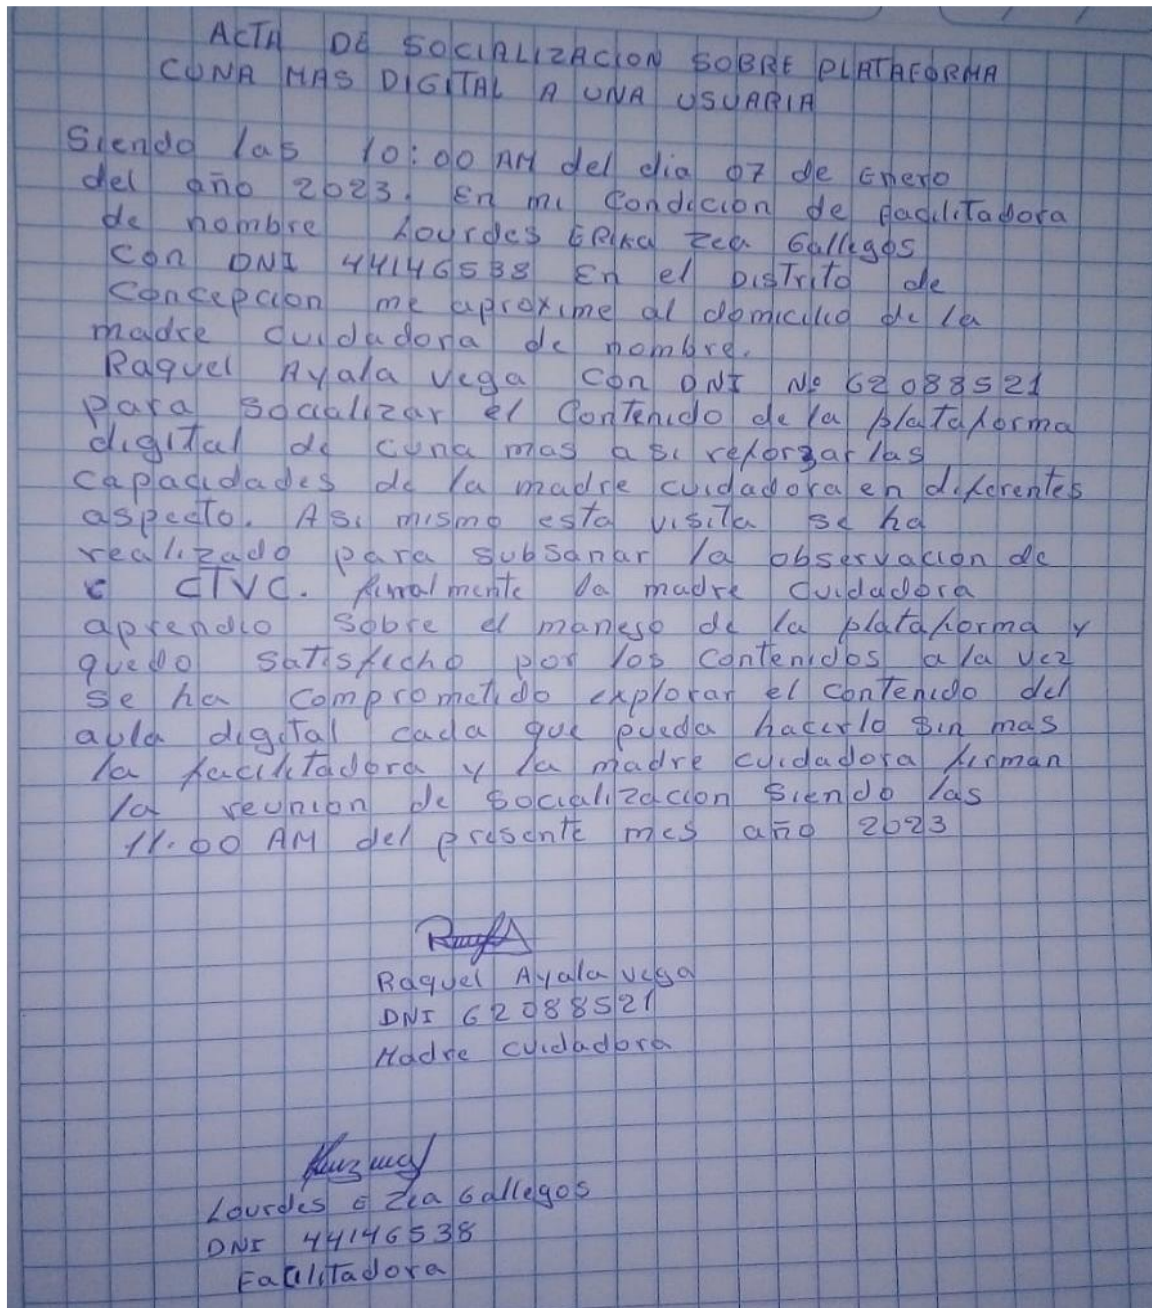 ACTA DE SOCIALIZACION SOBRE PLATAFORMA
CUNA MAS DIGITAL A UNA USUARIA
Siendo las 10:00 AM del dia 07 de Enero
del año 2023. En mi Condicion de facilitadora
de nombre Lourdes ERIKA Zea Gallegos
Con DNI 44146538 En el DisTrito de
Concepcion me aproxime al domicilio de la
madre cuidadora de nombre.
Raquel Ayala Vega Con DNI Nº 62088521
para socializar el ConTenido de la plataforma
digital de cuna mas asi reforzar las
capacidades de la madre cuidadora en diferentes
aspecto. Asi mismo esta visita se ha
realizado para subsanar la observacion de
c CTVC. finalmente la madre cuidadora
aprendio sobre el maneso de la plataforma y
quedo satisfecho por los contenidos a la vez
se ha comprometido explorar el contenido del
aula digital cada que pueda hacerlo sin mas
la facilitadora y la madre cuidadora firman
la reunion de socializacion siendo las
11:00 AM del presente mes año 2023
Raquel Ayala Vega
DNI 62088521
Madre cuidadora
Lourdes E Zea Gallegos
DNI 44146538
Facilitadora